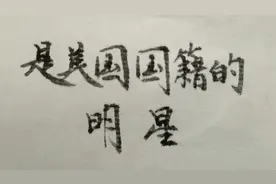 是美国国籍的
明星